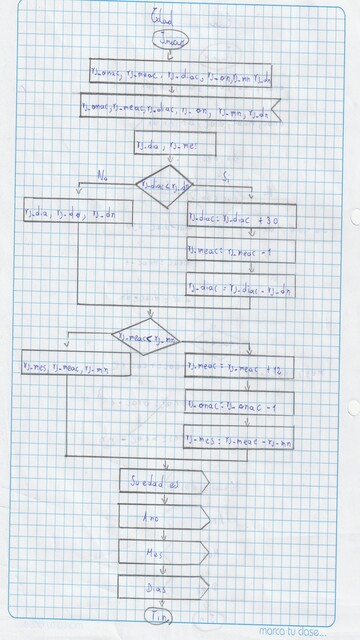 Edad
Inicio
rj_anac, rj_meac, rj_diac, rj_an, rj_mn rj_dn
rj_anac, rj_meac, rj_diac, rj_an, rj_mn, rj_dn
rj_da, rj_me
No
rj_diac<rj_dn
Si
rj_dia, rj_da, rj_dn
rj_diac=rj_diac +30
rj_meac=rj_meac -1
rj_diac=rj_diac-rj_dn
rj_meac<rj_mn
rj_mes, rj_meac, rj_mn
rj_meac=rj_meac +12
rj_anac=rj_anac -1
rj_mes=rj_meac-rj_mn
Su edad es
Ano
Mes
Dias
Fin
marca tu clase...